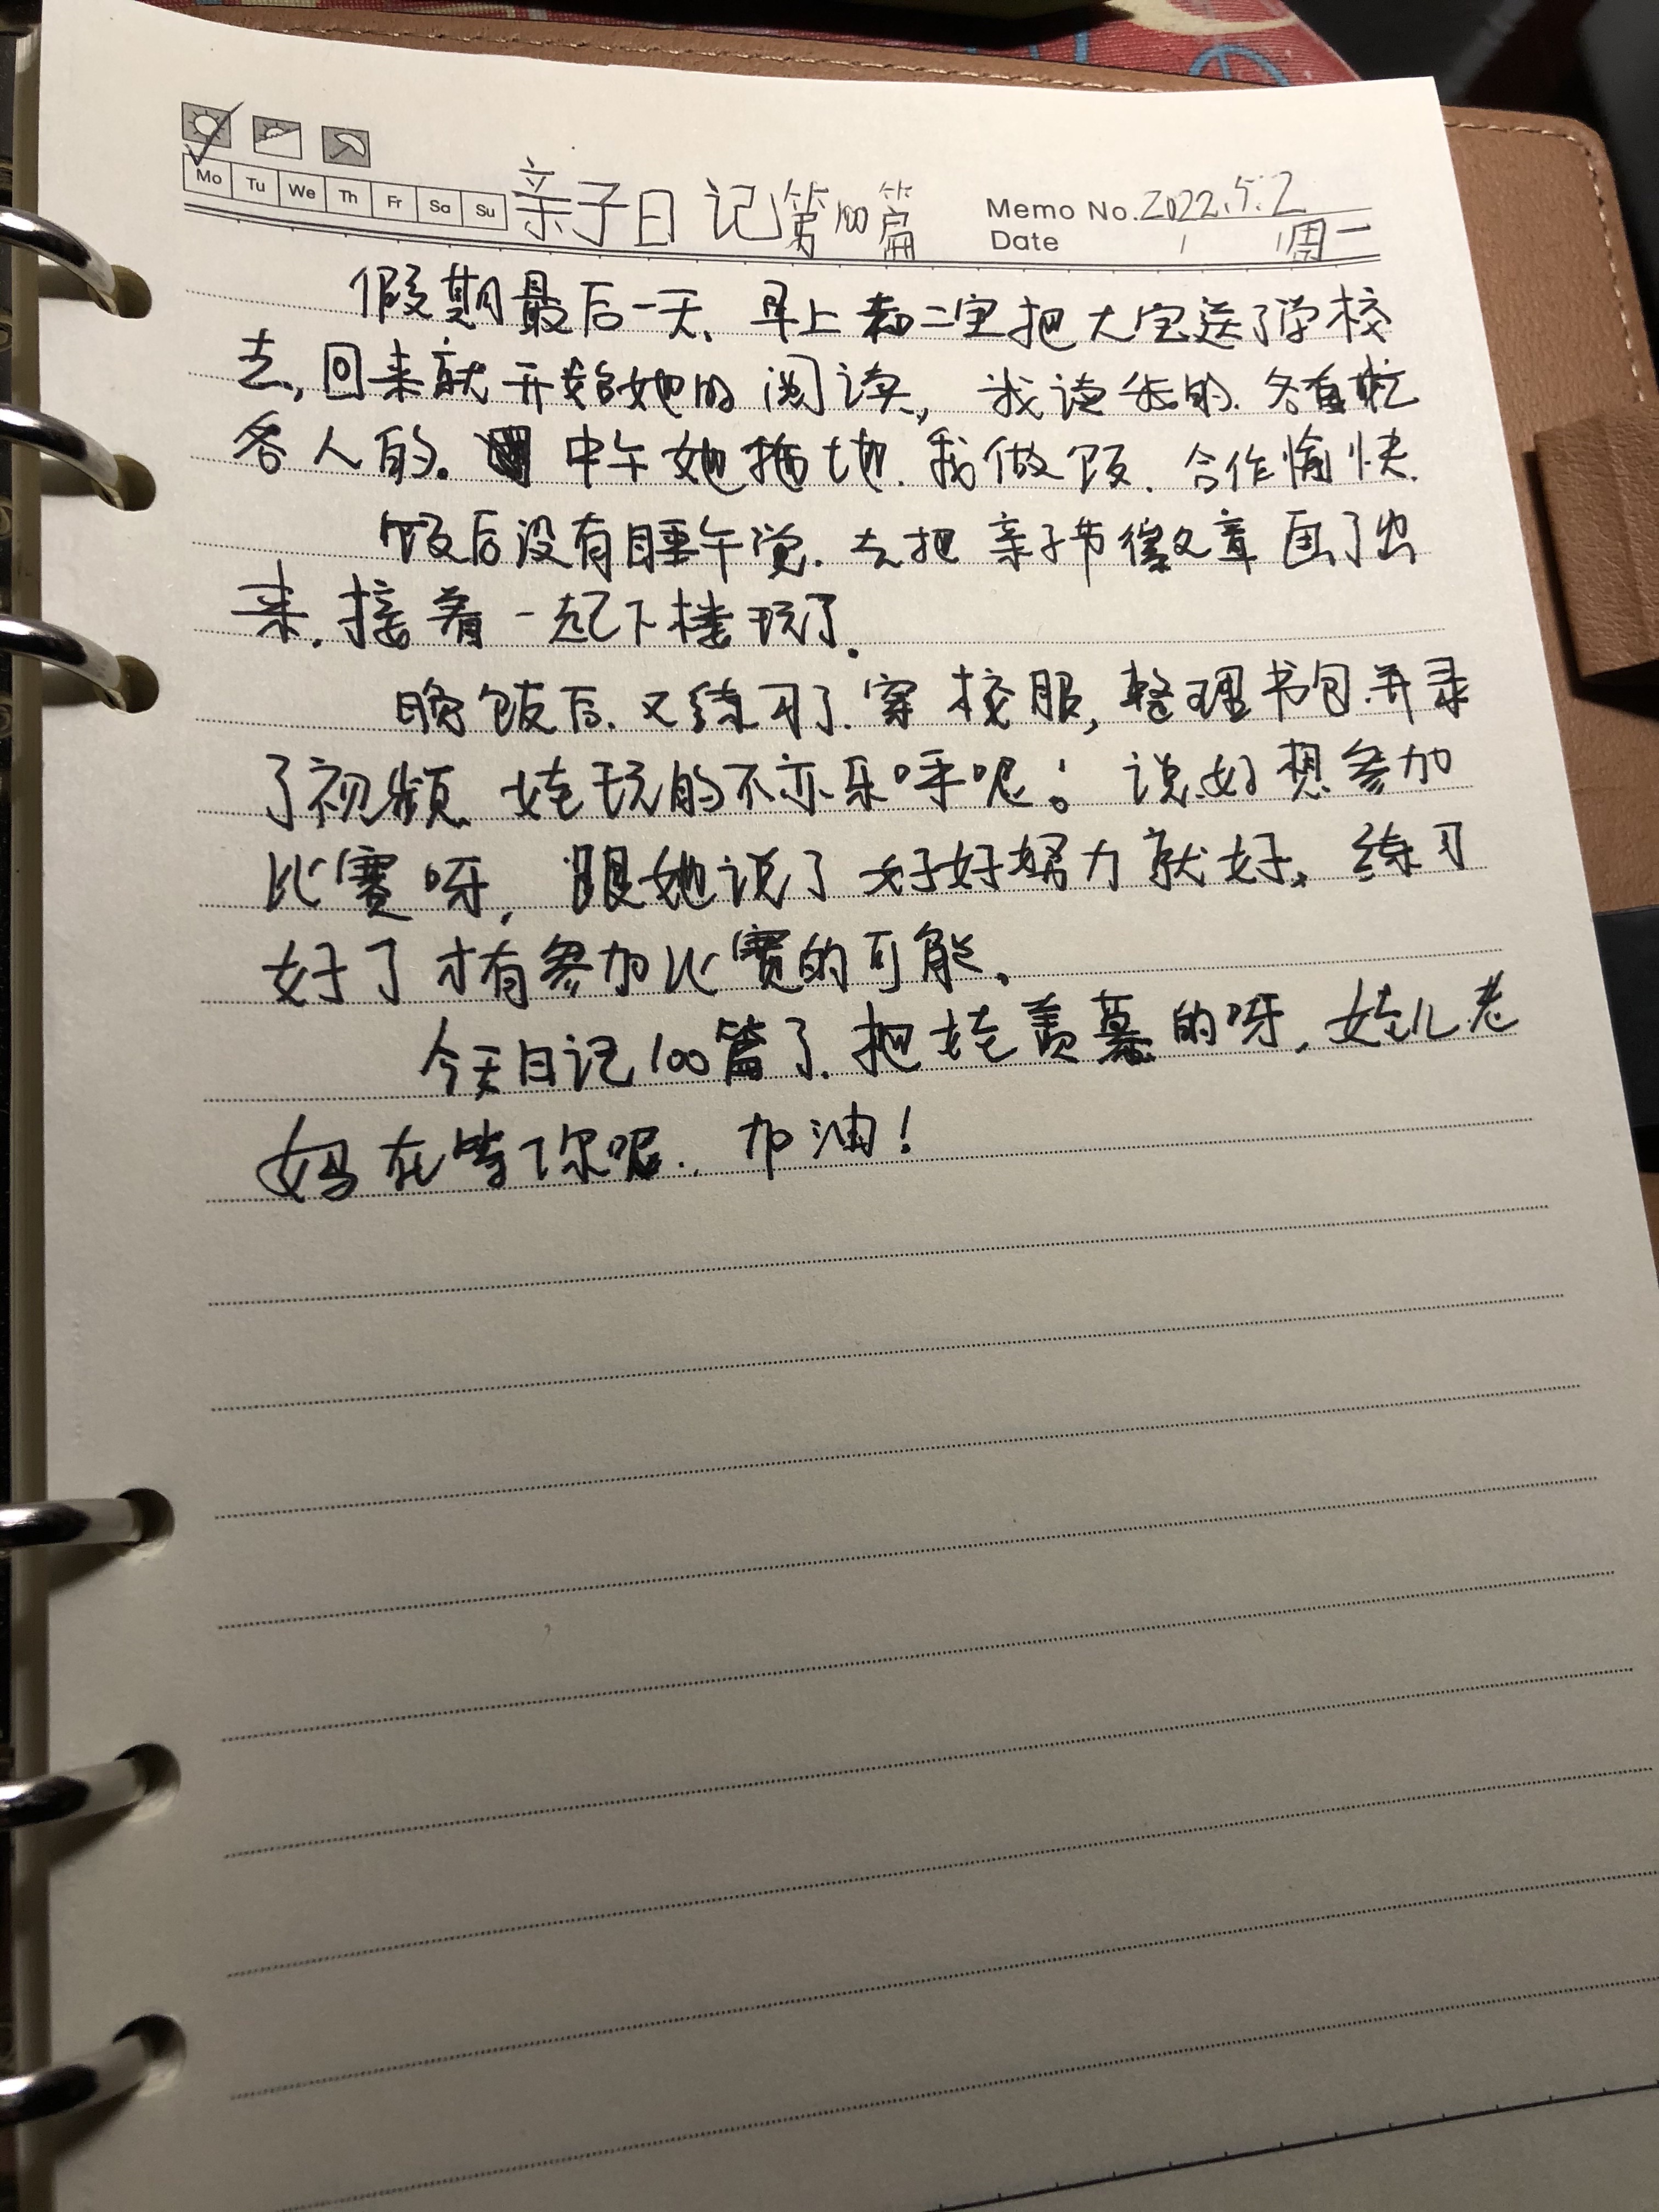 Mo Tu We Th Fr Sa Su
亲子日记第100篇
Memo No. 2022.5.2
Date / / 周一
假期最后一天.早上和二宝把大宝送了学校
去,回来就开始她的阅读,我读我的.各自忙
各人的。中午她拖地.我做饭.合作愉快.
饭后没有睡午觉.去把亲子节徽文章画了出
来.接着一起下楼玩了.
晚饭后.又练习了.穿校服,整理书包.并录
了视频.娃玩的不亦乐呼呢!说好想参加
比赛呀,跟她说了好好努力就好.练习
好了才有参加比赛的可能.
今天日记100篇了.把娃羡慕的呀.娃儿老
妈在等你呢.加油!